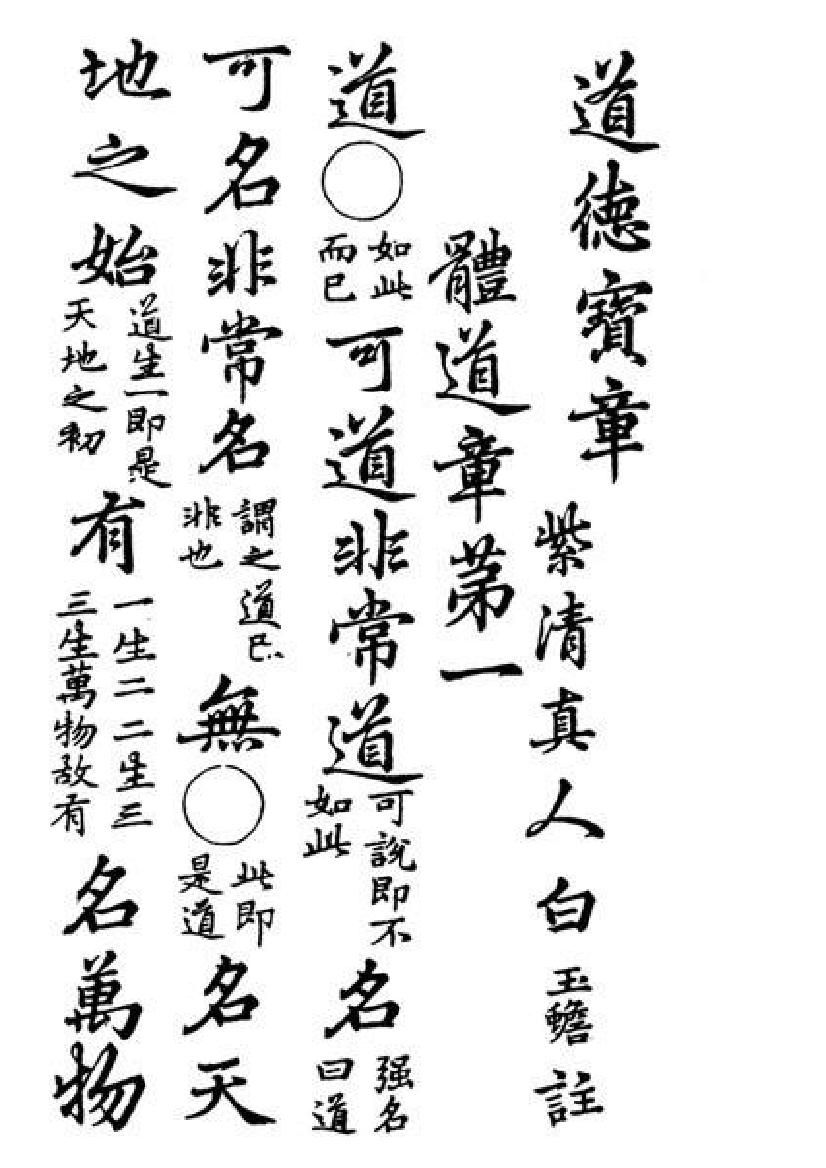 道德寶章
紫清真人白玉蟾註
體道章第一
道○如此而已可道非常道可說即不如此名强名曰道
可名非常名謂之道已非也無○此即是道名天
地之始道生一即是天地之初有一生二二生三三生萬物故有名萬物